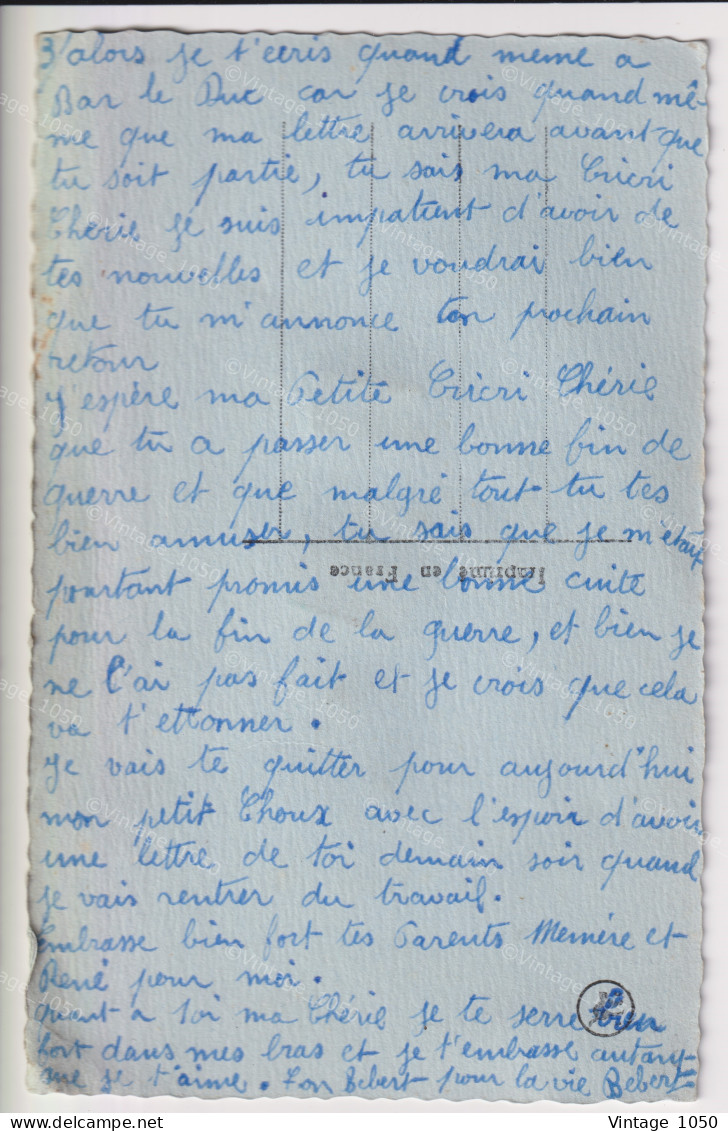 3/alors je t'ecris quand meme a
Bar le Duc car je crois quand mê-
me que ma lettre arrivera avant que
tu soit partie, tu sais ma Cricri
Cherie je suis impatient d'avoir de
tes nouvelles et je voudrai bien
que tu m'annonce ton prochain
retour
J'espère ma Petite Cricri Chérie
que tu a passer une bonne fin de
guerre et que malgré tout tu tes
bien amuser, tu sais que je m'étais
Imprimé en France
pourtant promis une bonne cuite
pour la fin de la guerre, et bien je
ne l'ai pas fait et je crois que cela
va t'ettonner.
Je vais te quitter pour aujourd'hui
mon petit Choux avec l'espoir d'avoir
une lettre de toi demain soir quand
je vais rentrer du travail.
Embrasse bien fort tes Parents Memère et
René pour moi.
quant a toi ma Chérie je te serre bien
fort dans mes bras et je t'embrasse autant
que je t'aime. Ton Bebert pour la vie Bebert
Vintage 1050